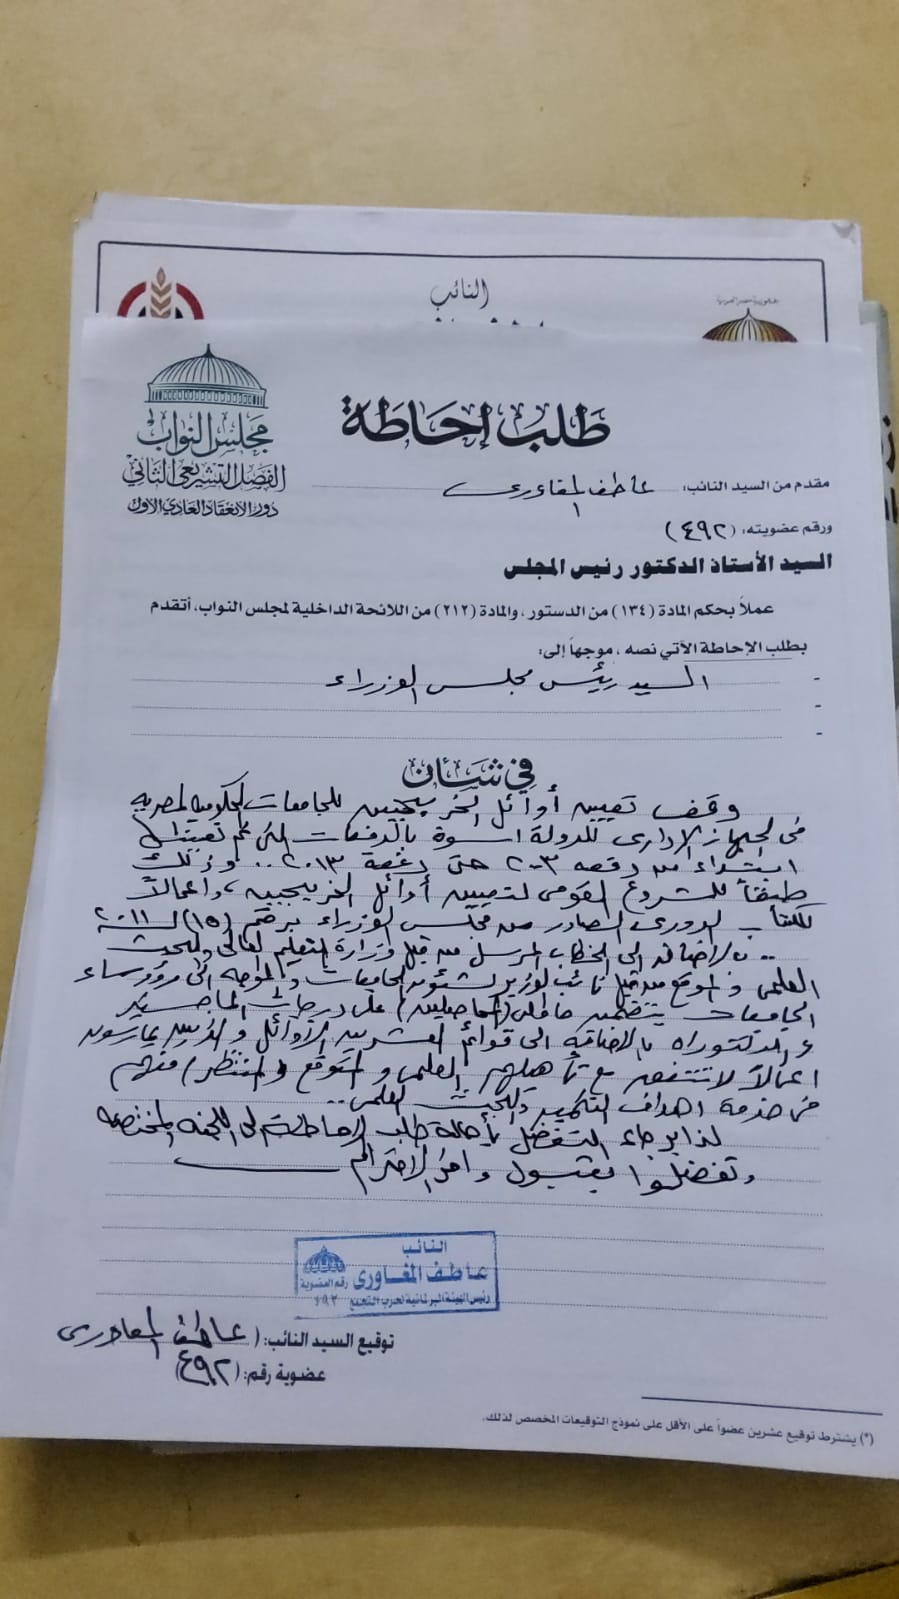 النائب
جمهورية مصر العربية
مجلس النواب
الفصل التشريعي الثاني
دور الانعقاد العادي الأول
طلب إحاطة
مقدم من السيد النائب: عاطف المغاورى
ورقم عضويته: (٤٩٢)
السيد الأستاذ الدكتور رئيس المجلس
عملاً بحكم المادة (١٣٤) من الدستور، والمادة (٢١٢) من اللائحة الداخلية لمجلس النواب، أتقدم
بطلب الإحاطة الآتي نصه، موجهاً إلى:
- السيد رئيس مجلس الوزراء
-
-
في شأن
وقف تعيين أوائل الخريجين للجامعات الحكومية المصرية
فى الجهاز الإدارى للدولة اسوة بالدفعات التى تم تعيينها
ابتداء من دفعه ٢٠٠٣ حتى دفعة ٢٠١٣ .. وذلك
طبقاً للمشروع القومى لتعيين أوائل الخريجين، واعمالاً
للكتاب الدورى الصادر من مجلس الوزراء برقم (١٥) لسنة ٢٠١١
.. بالاضافه الى الخطاب المرسل من قبل وزارة التعليم العالى والبحث
العلمى والموقع من قبل نائب الوزير لشئون الجامعات والموجه الى رؤساء
الجامعات يتضمن (الحاصلين) على درجات الماجستير
والدكتوراه بالاضافة الى قوائم العشرين الأوائل والذين يمارسون
اعمالاً لا تتفق مع تأهيلهم العلمى والمتوقع (والمنتظر) منهم
فى خدمة اهداف التنمية والبحث العلمى ..
لذا برجاء التفضل بأحالة طلب الإحاطة الى اللجنة المختصة
وتفضلوا بقبول وافر الاحترام
النائب
عاطف المغاورى
رقم العضوية
٤٩٢
رئيس الهيئة البرلمانية لحزب التجمع
توقيع السيد النائب: (عاطف المغاورى
عضوية رقم: (٤٩٢)
(*) يشترط توقيع عشرين عضواً على الأقل على نموذج التوقيعات المخصص لذلك.